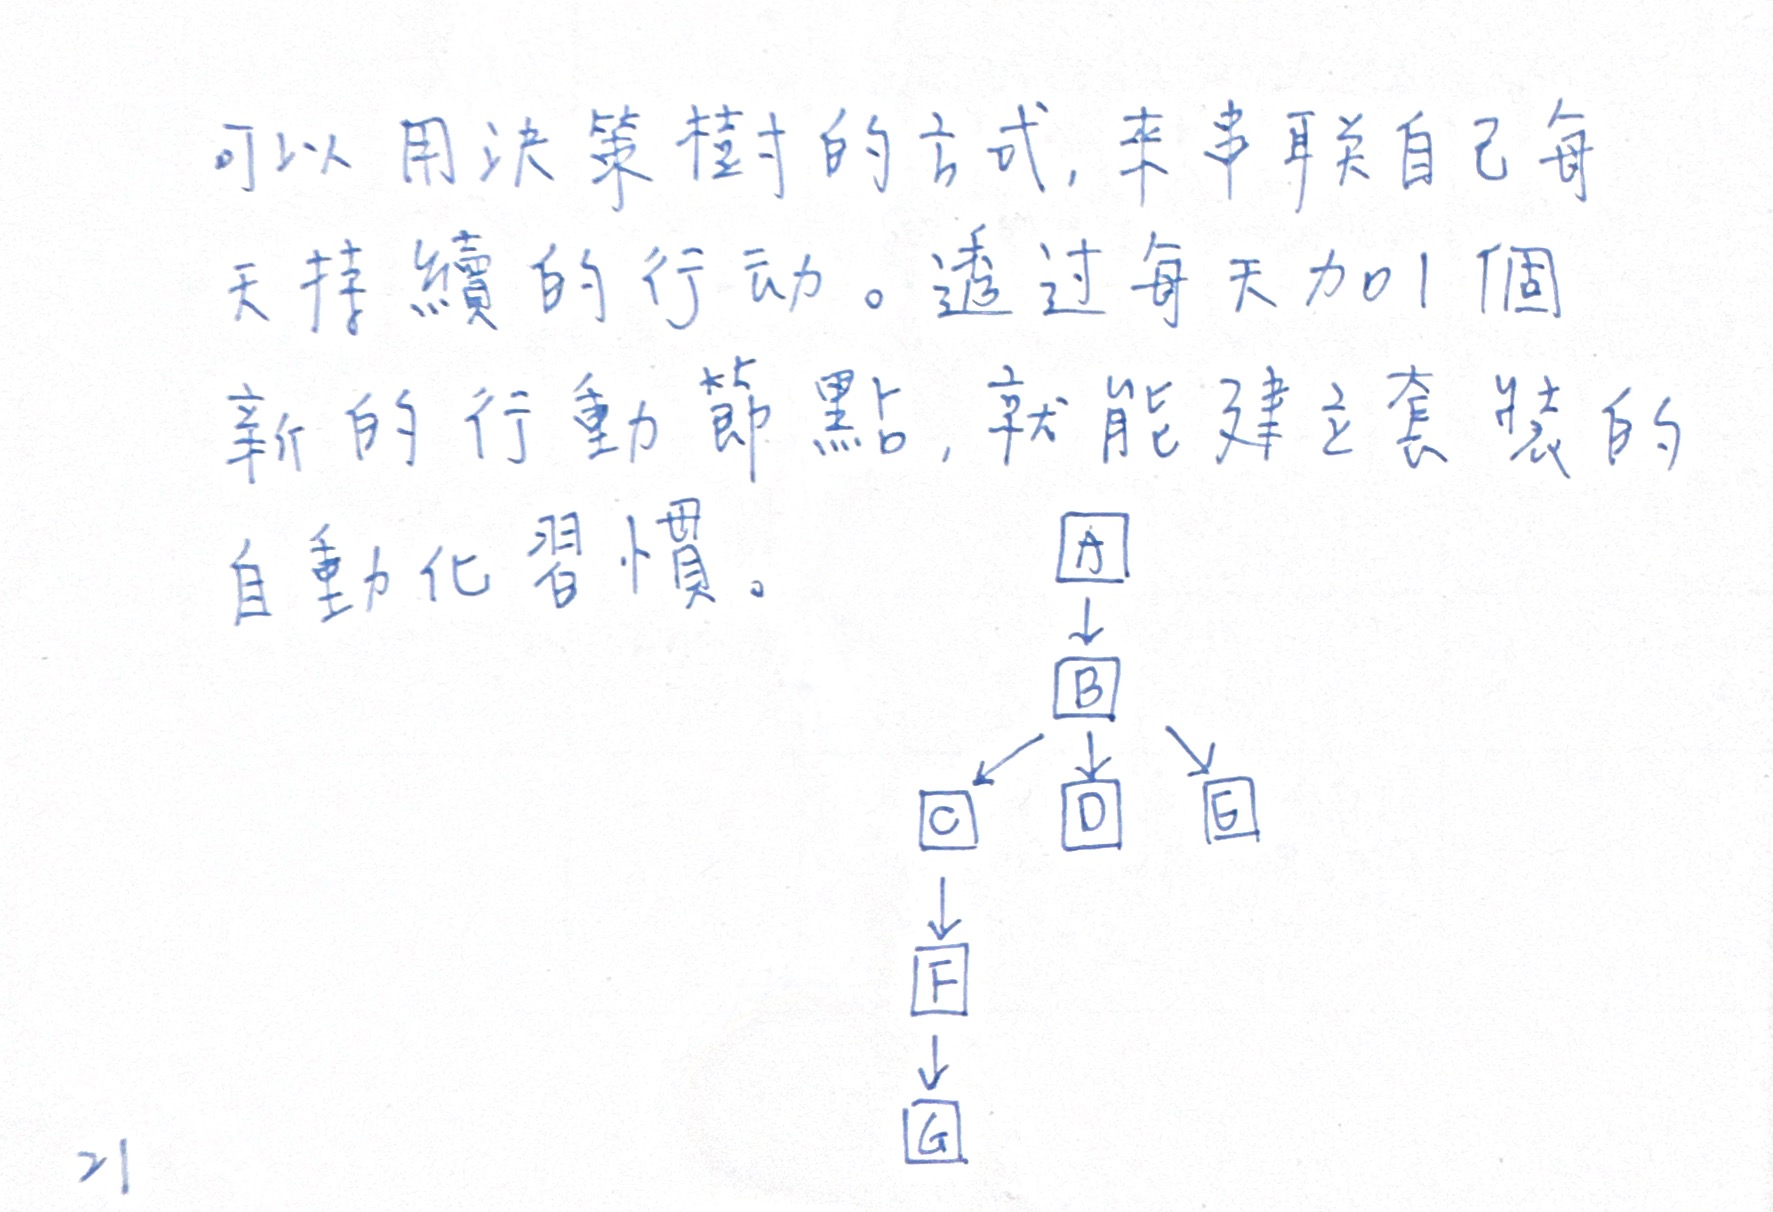 可以用決策樹的方式，來串联自己每
天持續的行动。透过每天加1個
新的行動節點，就能建立套裝的
自動化習慣。
A
B
C D E
F
G
21